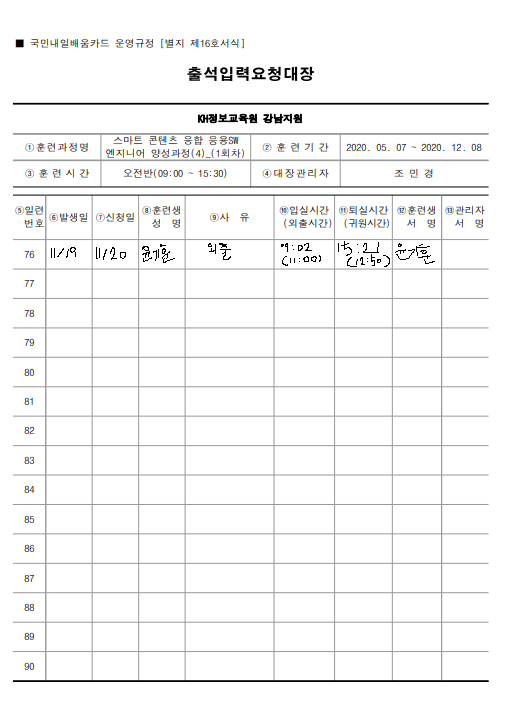 ■ 국민내일배움카드 운영규정 [별지 제16호서식]
출석입력요청대장
KH정보교육원 강남지원
①훈련과정명 스마트 콘텐츠 융합 응용SW 엔지니어 양성과정(4)_(1회차) ② 훈 련 기 간 2020. 05. 07 ~ 2020. 12. 08
③ 훈 련 시 간 오전반(09:00 ~ 15:30) ④대장관리자 조 민 경
⑤일련번호 ⑥발생일 ⑦신청일 ⑧훈련생 성 명 ⑨사 유 ⑩입실시간 (외출시간) ⑪퇴실시간 (귀원시간) ⑫훈련생 서 명 ⑬관리자 서 명
76 11/19 11/20 윤기훈 외출 9:02 (11:00) 15:21 (12:50) 윤기훈
77
78
79
80
81
82
83
84
85
86
87
88
89
90